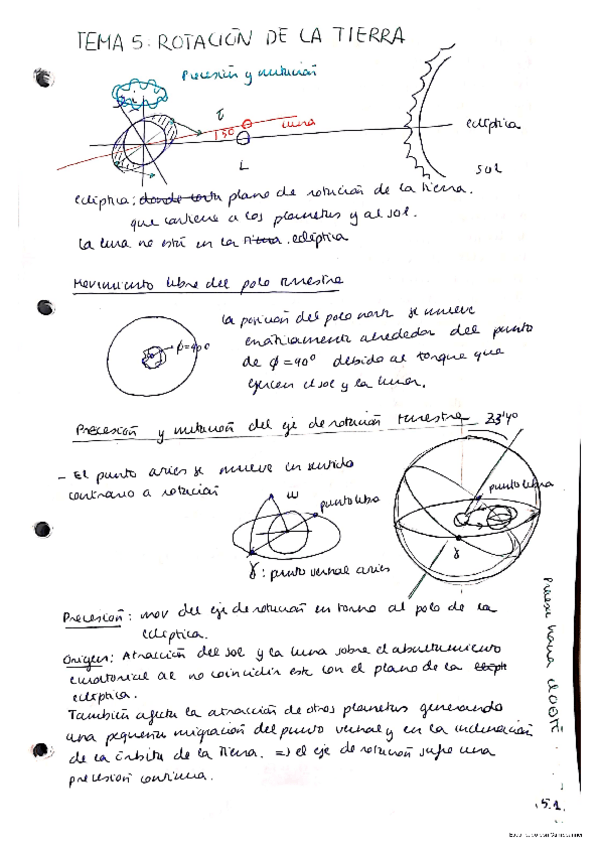 TEMA 5: ROTACIÓN DE LA TIERRA
Precesión y nutación
luna
eclíptica
5º
L
SOL
eclíptica: donde corta plano de rotación de la tierra.
que contiene a los planetas y al sol.
la luna no está en la tierra eclíptica
Movimiento libre del polo terrestre
la posición del polo norte se mueve
erráticamente alrededor del punto
de ϕ=90º debido al torque que
ejercen el sol y la luna.
ϕ=90º
Precesión y nutación del eje de rotación terrestre
23'40
- El punto aries se mueve en sentido
contrario a rotación
ω
punto libra
punto libra
γ
γ: punto vernal aries
Precesión: mov del eje de rotación en torno al polo de la
eclíptica.
Origen: Atracción del sol y la luna sobre el abultamiento
ecuatorial al no coincidir este con el plano de la eclipti
eclíptica.
También afecta la atracción de otros planetas generando
una pequeña migración del punto vernal y en la inclinación
de la órbita de la Tierra. => el eje de rotación sufre una
precesión continua.
hacia
5.1.